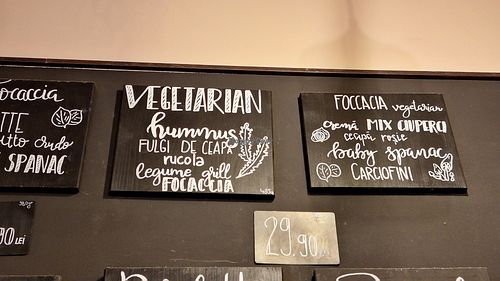 Focaccia
TTE
tto crudo
SPANAC
VEGETARIAN
hummus
FULGI DE CEAPĂ
rucola
legume grill
FOCACCIA
FOCCACIA vegetarian
cremă MIX CIUPERCI
ceapă roșie
baby spanac
CARCIOFINI
90 LEI
29,90